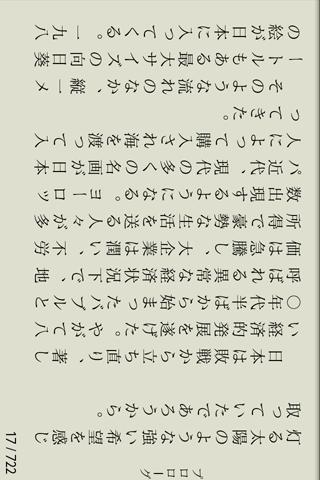 プロローグ
灯る太陽のような強い希望を感じ
取っていたであろうから。
日本は敗戦から立ち直り、著し
い経済的発展を遂げた。やがて八
〇年代半ばから始まったバブルと
呼ばれる異常な経済状況下で、地
価は急騰し、大企業は潤い、不労
所得で豪勢な生活を送る人々が多
数出現するようになる。ヨーロッ
パ近代、現代の多くの名画が日本
人によって購入され海を渡って入
ってきた。
そのような流れのなか、縦一メ
ートルもある最大サイズの向日葵
の絵が日本に入ってくる。一九八
17/722